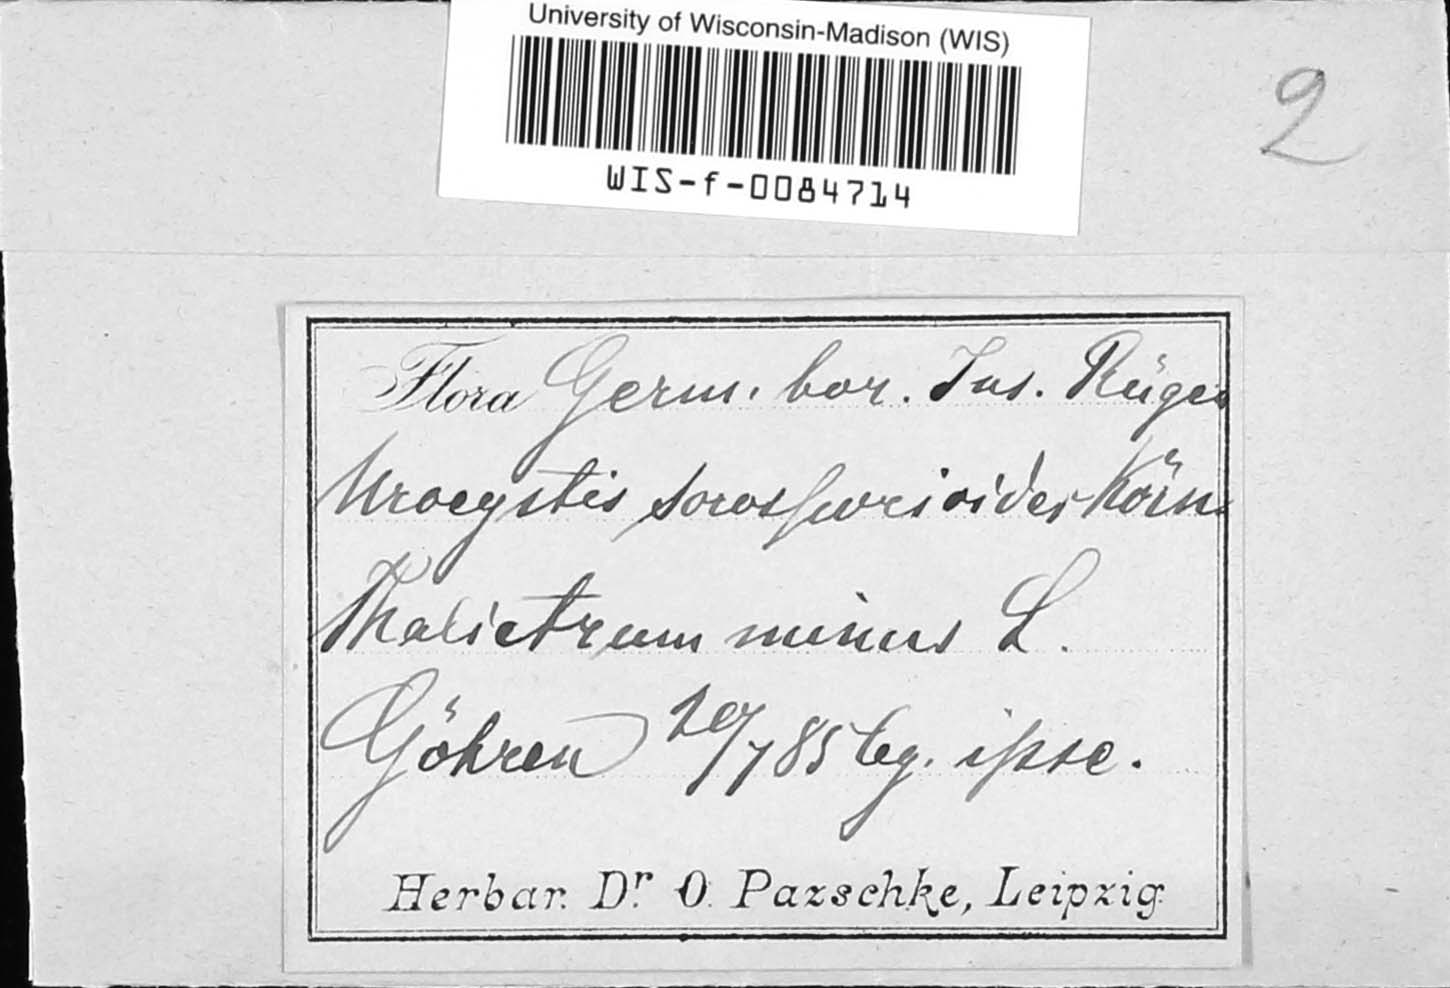 University of Wisconsin-Madison (WIS)
WIS-f-0084714
2
Flora Germ. bor. Ins. Rügen
Urocystis sorosporioides Körn.
Thalictrum minus L.
Göhren 20/7 85 leg. ipse.
Herbar. Dr. O. Pazschke, Leipzig.